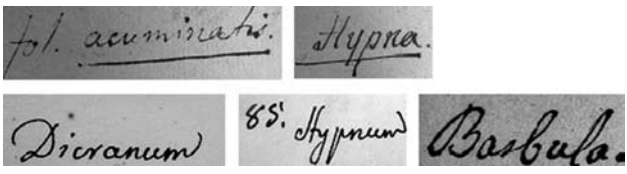 fol. acuminatis.
Hypna.
Dicranum
85. Hypnum
Barbula.